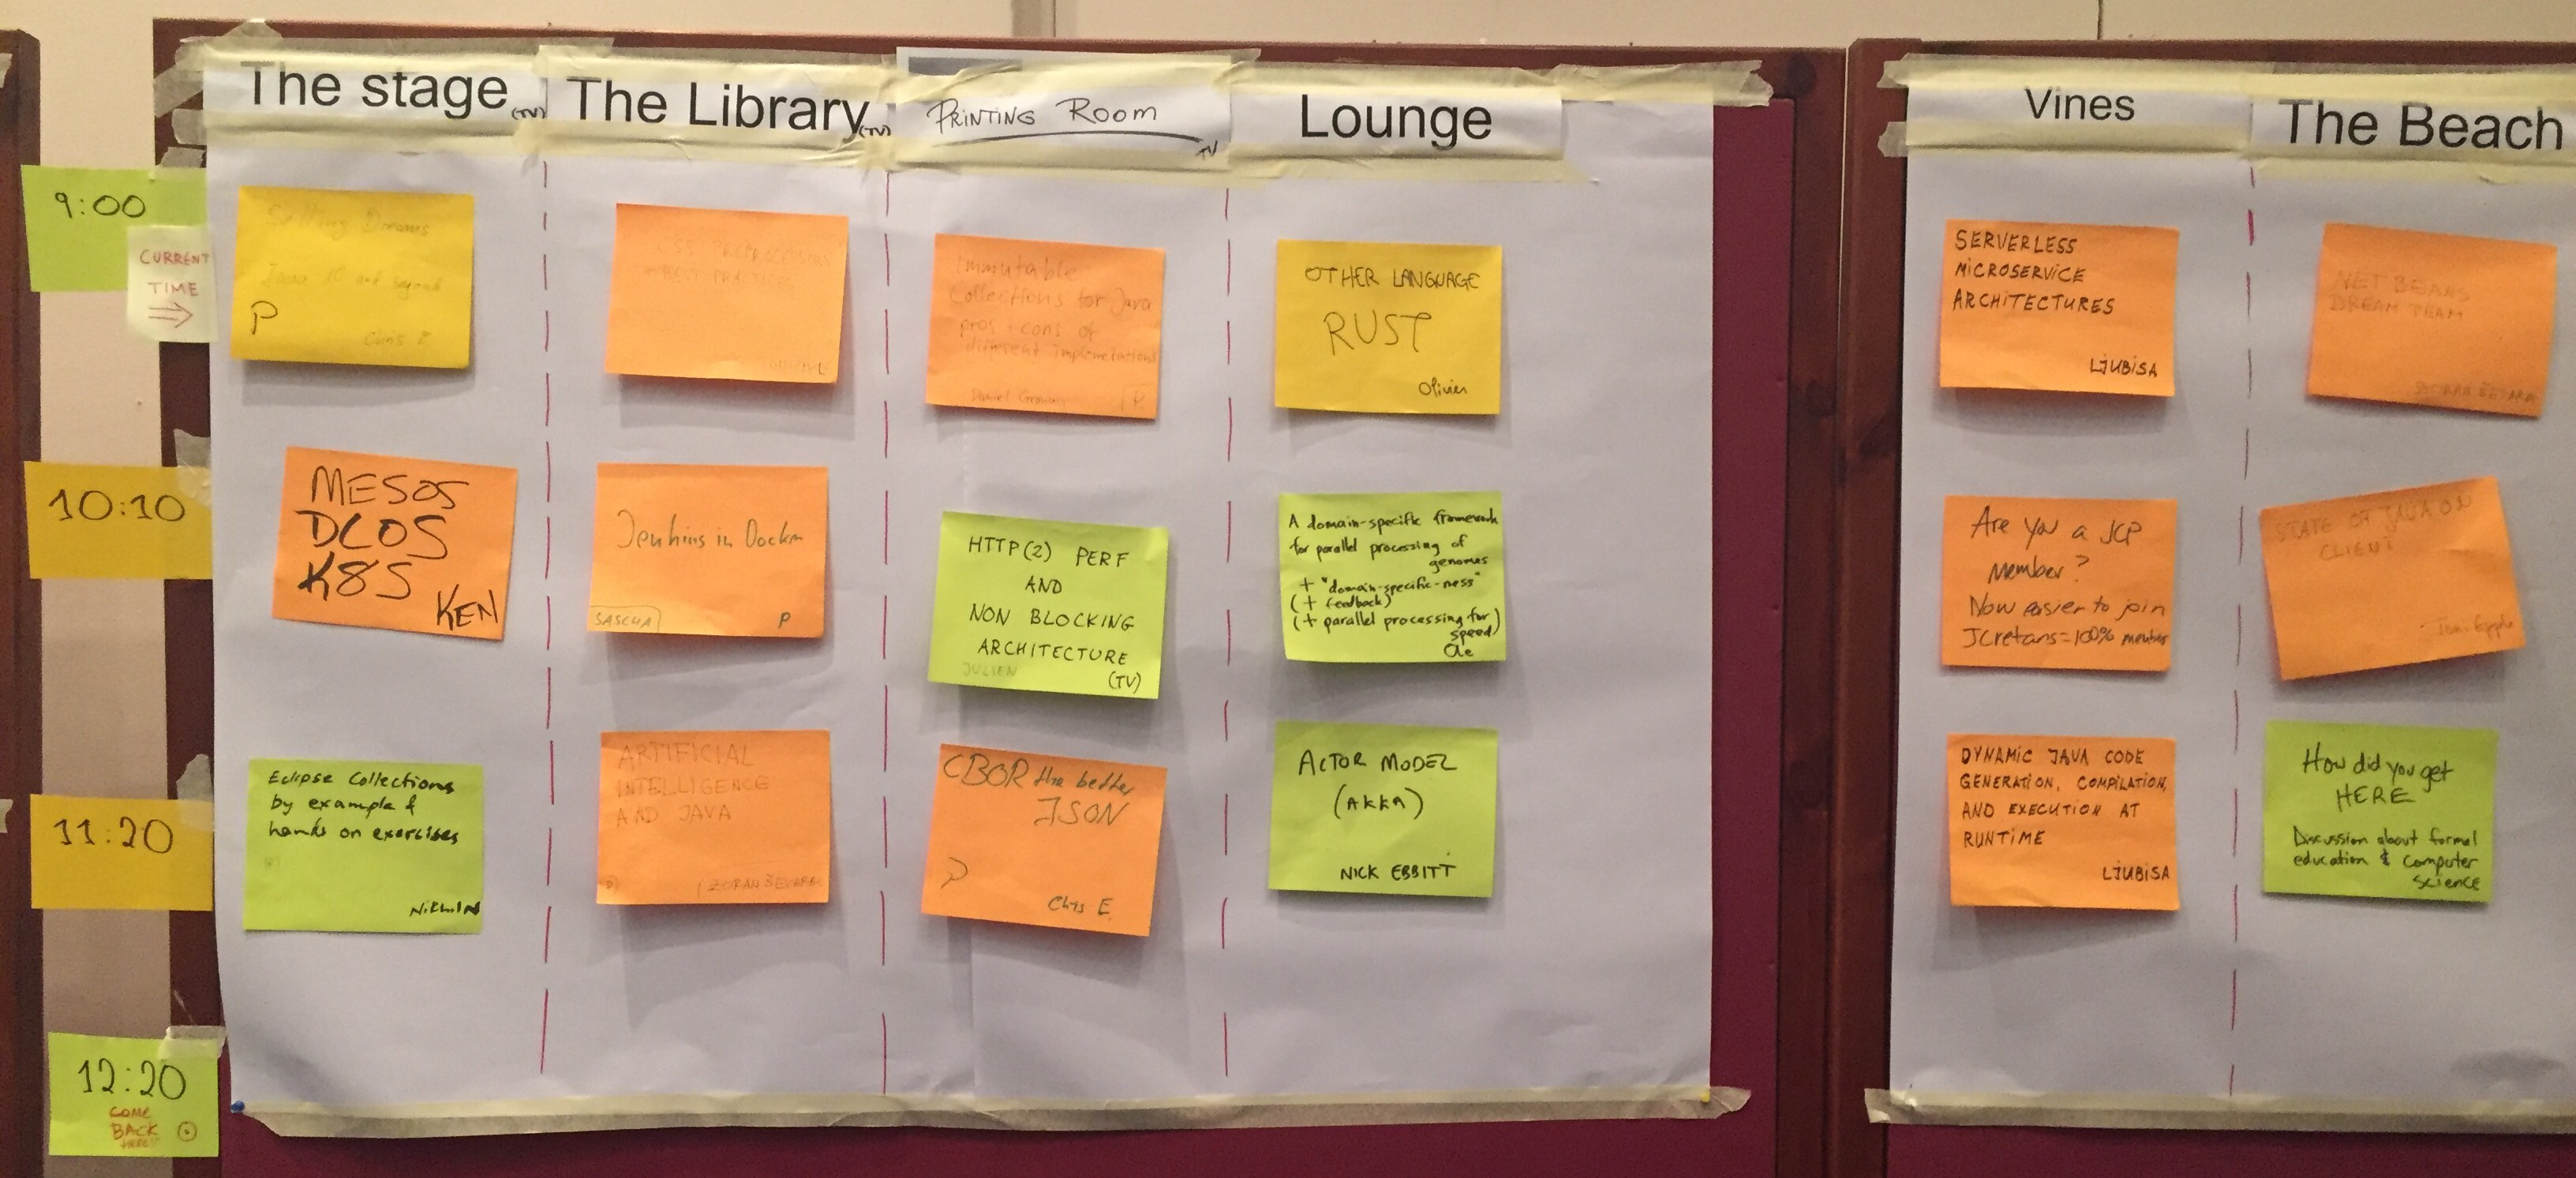 The stage (TV)
The Library (TV)
PRINTING ROOM
TV
Lounge
Vines
The Beach
9:00
CURRENT
TIME
⇒
Java 10 and
P
Chris E
CSS PREPROCESSORS
+ BEST PRACTICES
Immutable
Collections for Java
pros + cons of
different implementations
Daniel
P
OTHER LANGUAGE
RUST
Olivier
SERVERLESS
MICROSERVICE
ARCHITECTURES
LJUBISA
NET BEANS
DREAM TEAM
ZORAN ŠEVARAC
10:10
MESOS
DCOS
K8S
KEN
Jenkins in Docker
SASCHA
P
HTTP(2) PERF
AND
NON BLOCKING
ARCHITECTURE
JULIEN
(TV)
A domain-specific framework
for parallel processing of
genomes
+ "domain-specific-ness"
(+ feedback)
(+ parallel processing for
speed)
Are you a JCP
member?
Now easier to join
JCretans=100% member
STATE OF JAVA ON
CLIENT
Toni Epple
11:20
Eclipse Collections
by example &
hands on exercises
Nikhil N
ARTIFICIAL
INTELLIGENCE
AND JAVA
ZORAN ŠEVARAC
CBOR the better
JSON
P
Chris E.
ACTOR MODEL
(AKKA)
NICK EBBITT
DYNAMIC JAVA CODE
GENERATION, COMPILATION,
AND EXECUTION AT
RUNTIME
LJUBISA
How did you get
HERE
Discussion about formal
education & computer
science
12:20
COME
BACK
HERE!